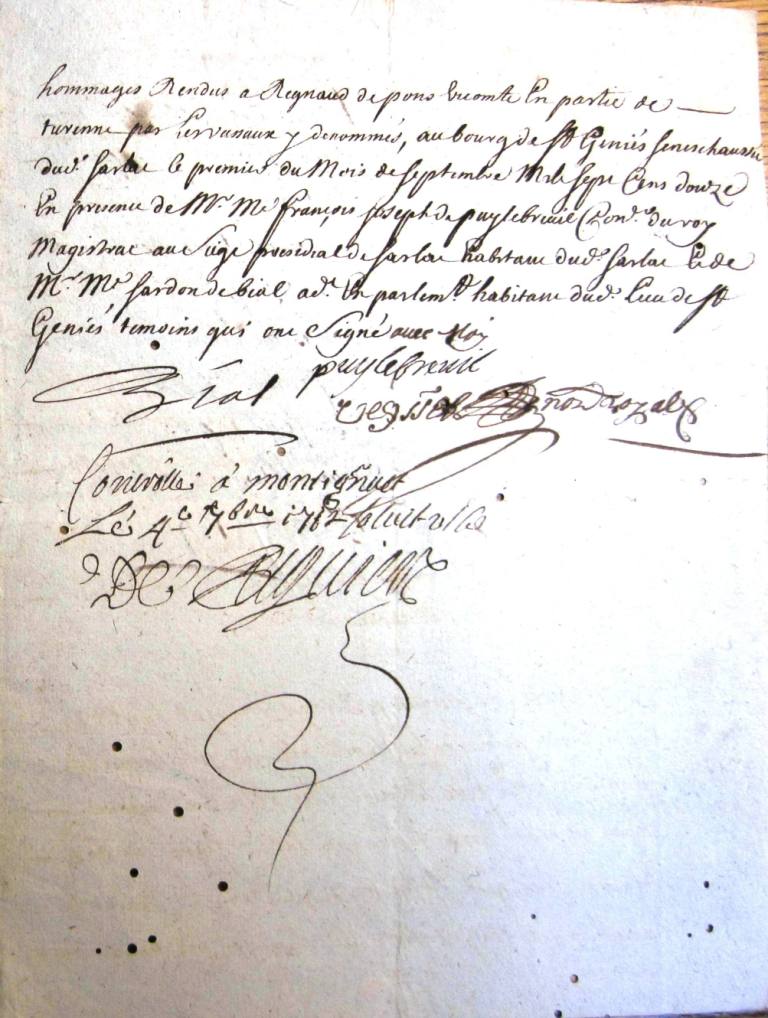 hommages Rendus a Regnaud de pons vicomte En partie de
turenne par les vassaux y denommés, au bourg de St Geniés seneschaussée
dud. sarlat le premier du Mois de septembre Mil sept Cens douze
En presence de Mr Me françois joseph de puylebreuil Con.er du roy
Magistrat au siege presidial de sarlat habitant dud. sarlat Et de
Mr Me sardon de bial ad. En parlemt habitant dud. Lieu de St
Geniés temoins qui ont Signé avec Moy
Bial puylebreuil
Controllé à montignac
Le 4e 7bre 1712